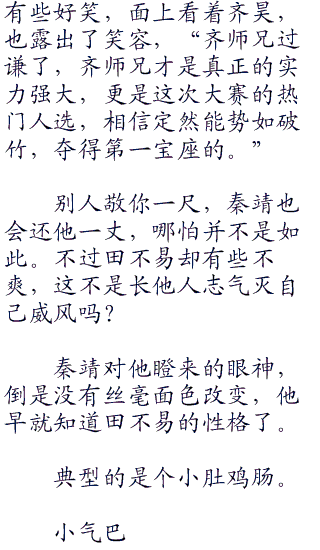 有些好笑，面上看着齐昊，
也露出了笑容，“齐师兄过
谦了，齐师兄才是真正的实
力强大，更是这次大赛的热
门人选，相信定然能势如破
竹，夺得第一宝座的。”
别人敬你一尺，秦靖也
会还他一丈，哪怕并不是如
此。不过田不易却有些不
爽，这不是长他人志气灭自
己威风吗？
秦靖对他瞪来的眼神，
倒是没有丝毫面色改变，他
早就知道田不易的性格了。
典型的是个小肚鸡肠。
小气巴